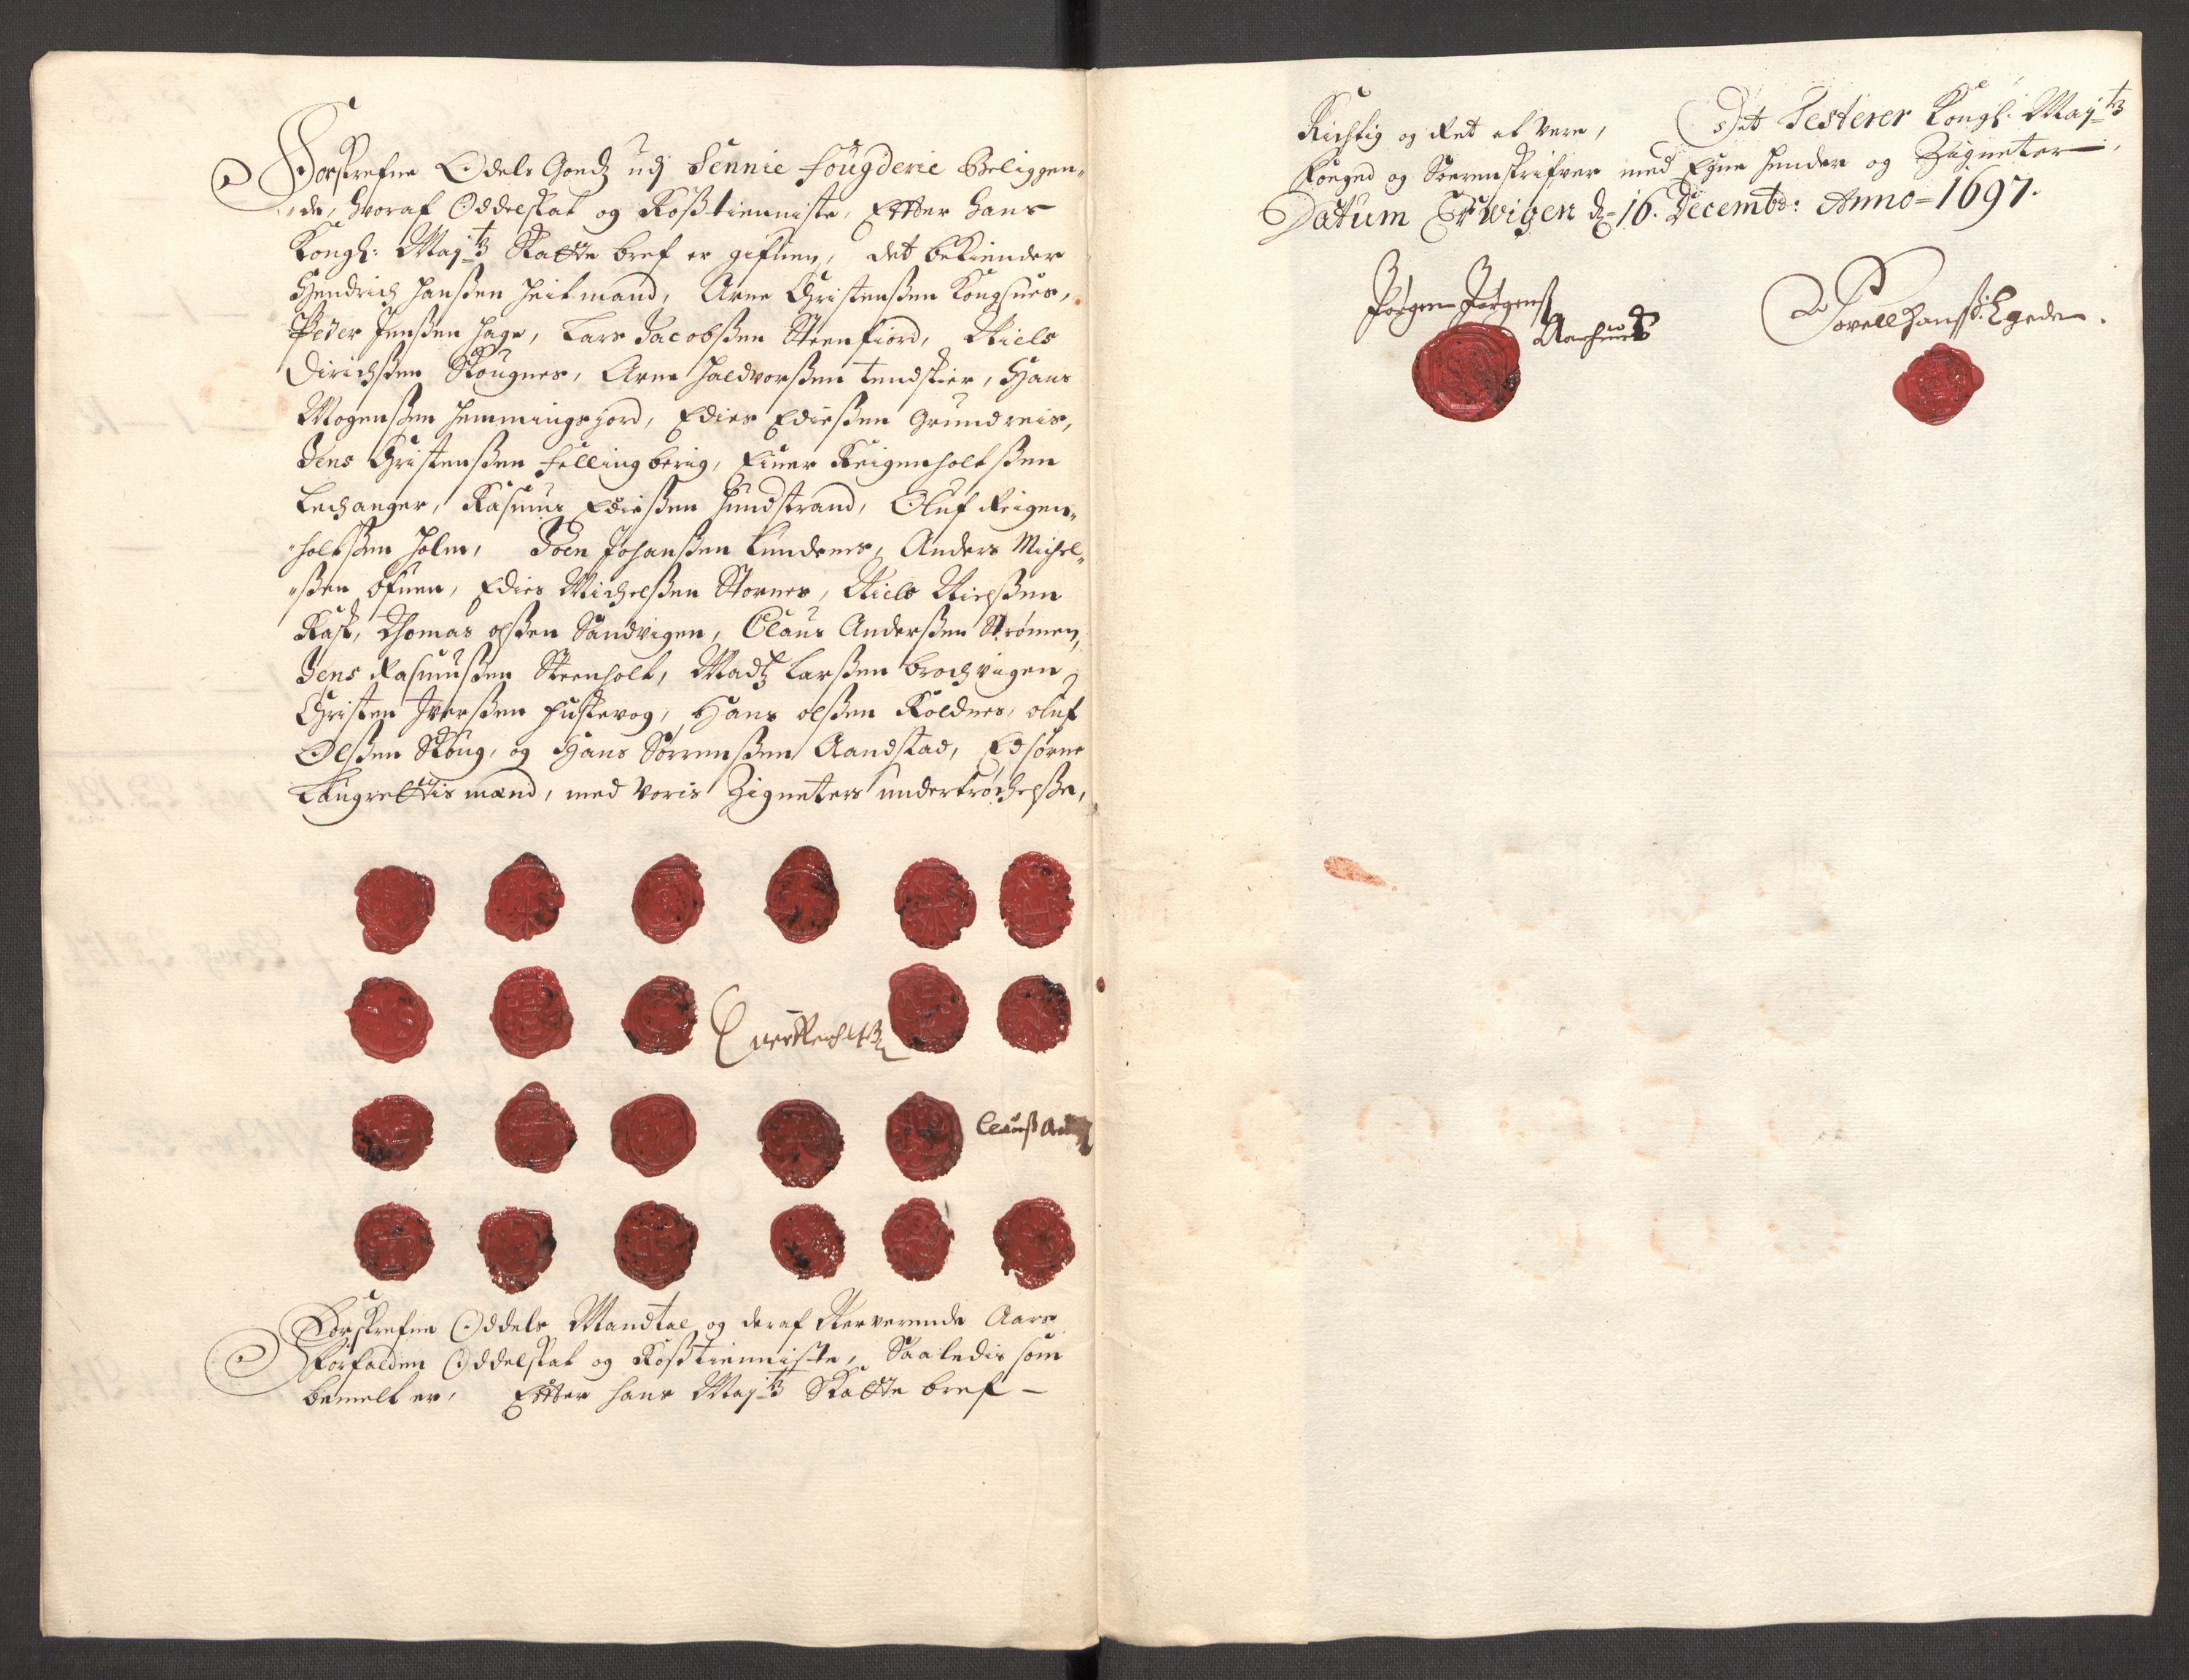 Forskrefne Odels Goedz udj Sennie fougderie Beliggen„
„de, hvoraf Oddelskat og Roßtienniste, Etter hans
Kongl: Maj:tz Skatte bref er gifuen, det bekiender
Hendrich Hanßen Heitmand, Arne Christenßen Kongsnes,
Peder Jenßen Hage, Lars Jacobßen Steenfiord, Niels
Dirichßen Skougnes, Arne Haldvorßen tendskier, Hans
Mogenßen Hemmingsjord, Edies Edießen Grundreis,
Jens Christenßen fellingberig, Einer Reigenholtßen
Lechanger, Rasmus Edießen Hundstrand, Oluf Reigen„
„holtßen Holm, Joen Johanßen Lundenes, Anders Michel„
„ßen Ofnen, Edies Michelßen Stornes, Niels Nielßen
Rask, Thomas olßen Sandvigen, Claus Anderßen Strømen,
Jens Rasmußen Steenholt, Madz Larßen brochvigen
Christen Iverßen fuskevog, Hans olßen Koldnes, oluf
Olßen Skoug, og Hans Sørrenßen Aandstad, Edsorne
Laugrettis mænd, med voris Zigneters undertrøchelße,
Claus And
Forskrefne Oddels Mandtal og deraf Nerverende Aars
Forfalden Oddelskat og Roßtienniste, Saaledis som
bemelt er, Etter hans Maj:tz Skatte bref –
Richtig og Ret at vere, Det Testerer Kongl: Maj:tz
fouged og Sorenskrifver med Egne hender og Zigneter
Datum Erwigen d: 16. Decembr: Anno = 1697.
Jørgen Jørgenß
Aarhus
Povell Hanßø: Egede.